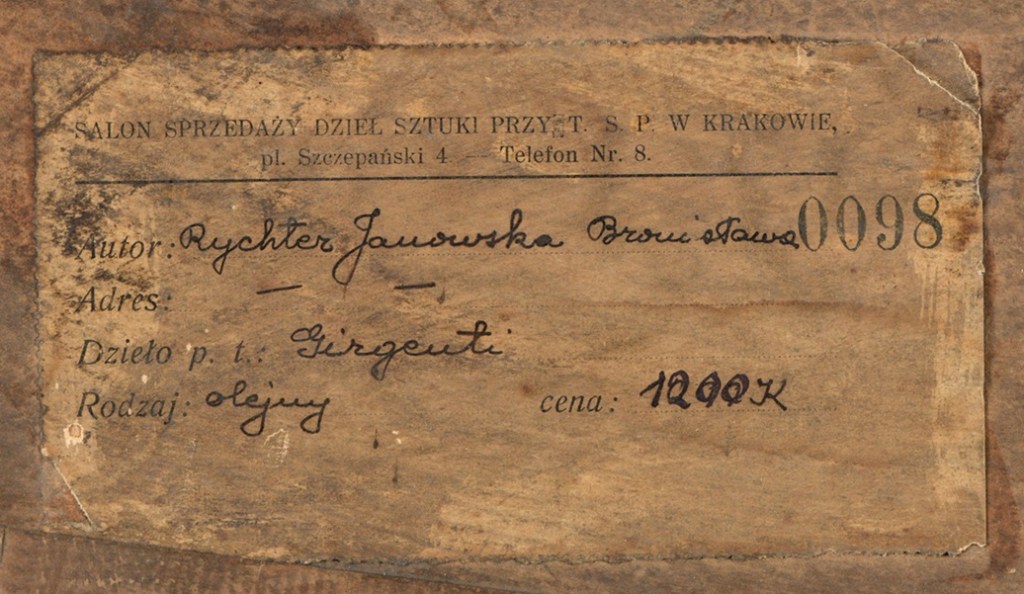 SALON SPRZEDAŻY DZIEŁ SZTUKI PRZY T. S. P. W KRAKOWIE,
pl. Szczepański 4 — Telefon Nr. 8.
Autor: Rychter Janowska Bronisława 0098
Adres: — —
Dzieło p. t.: Girgenti
Rodzaj: olejny cena: 1200 K